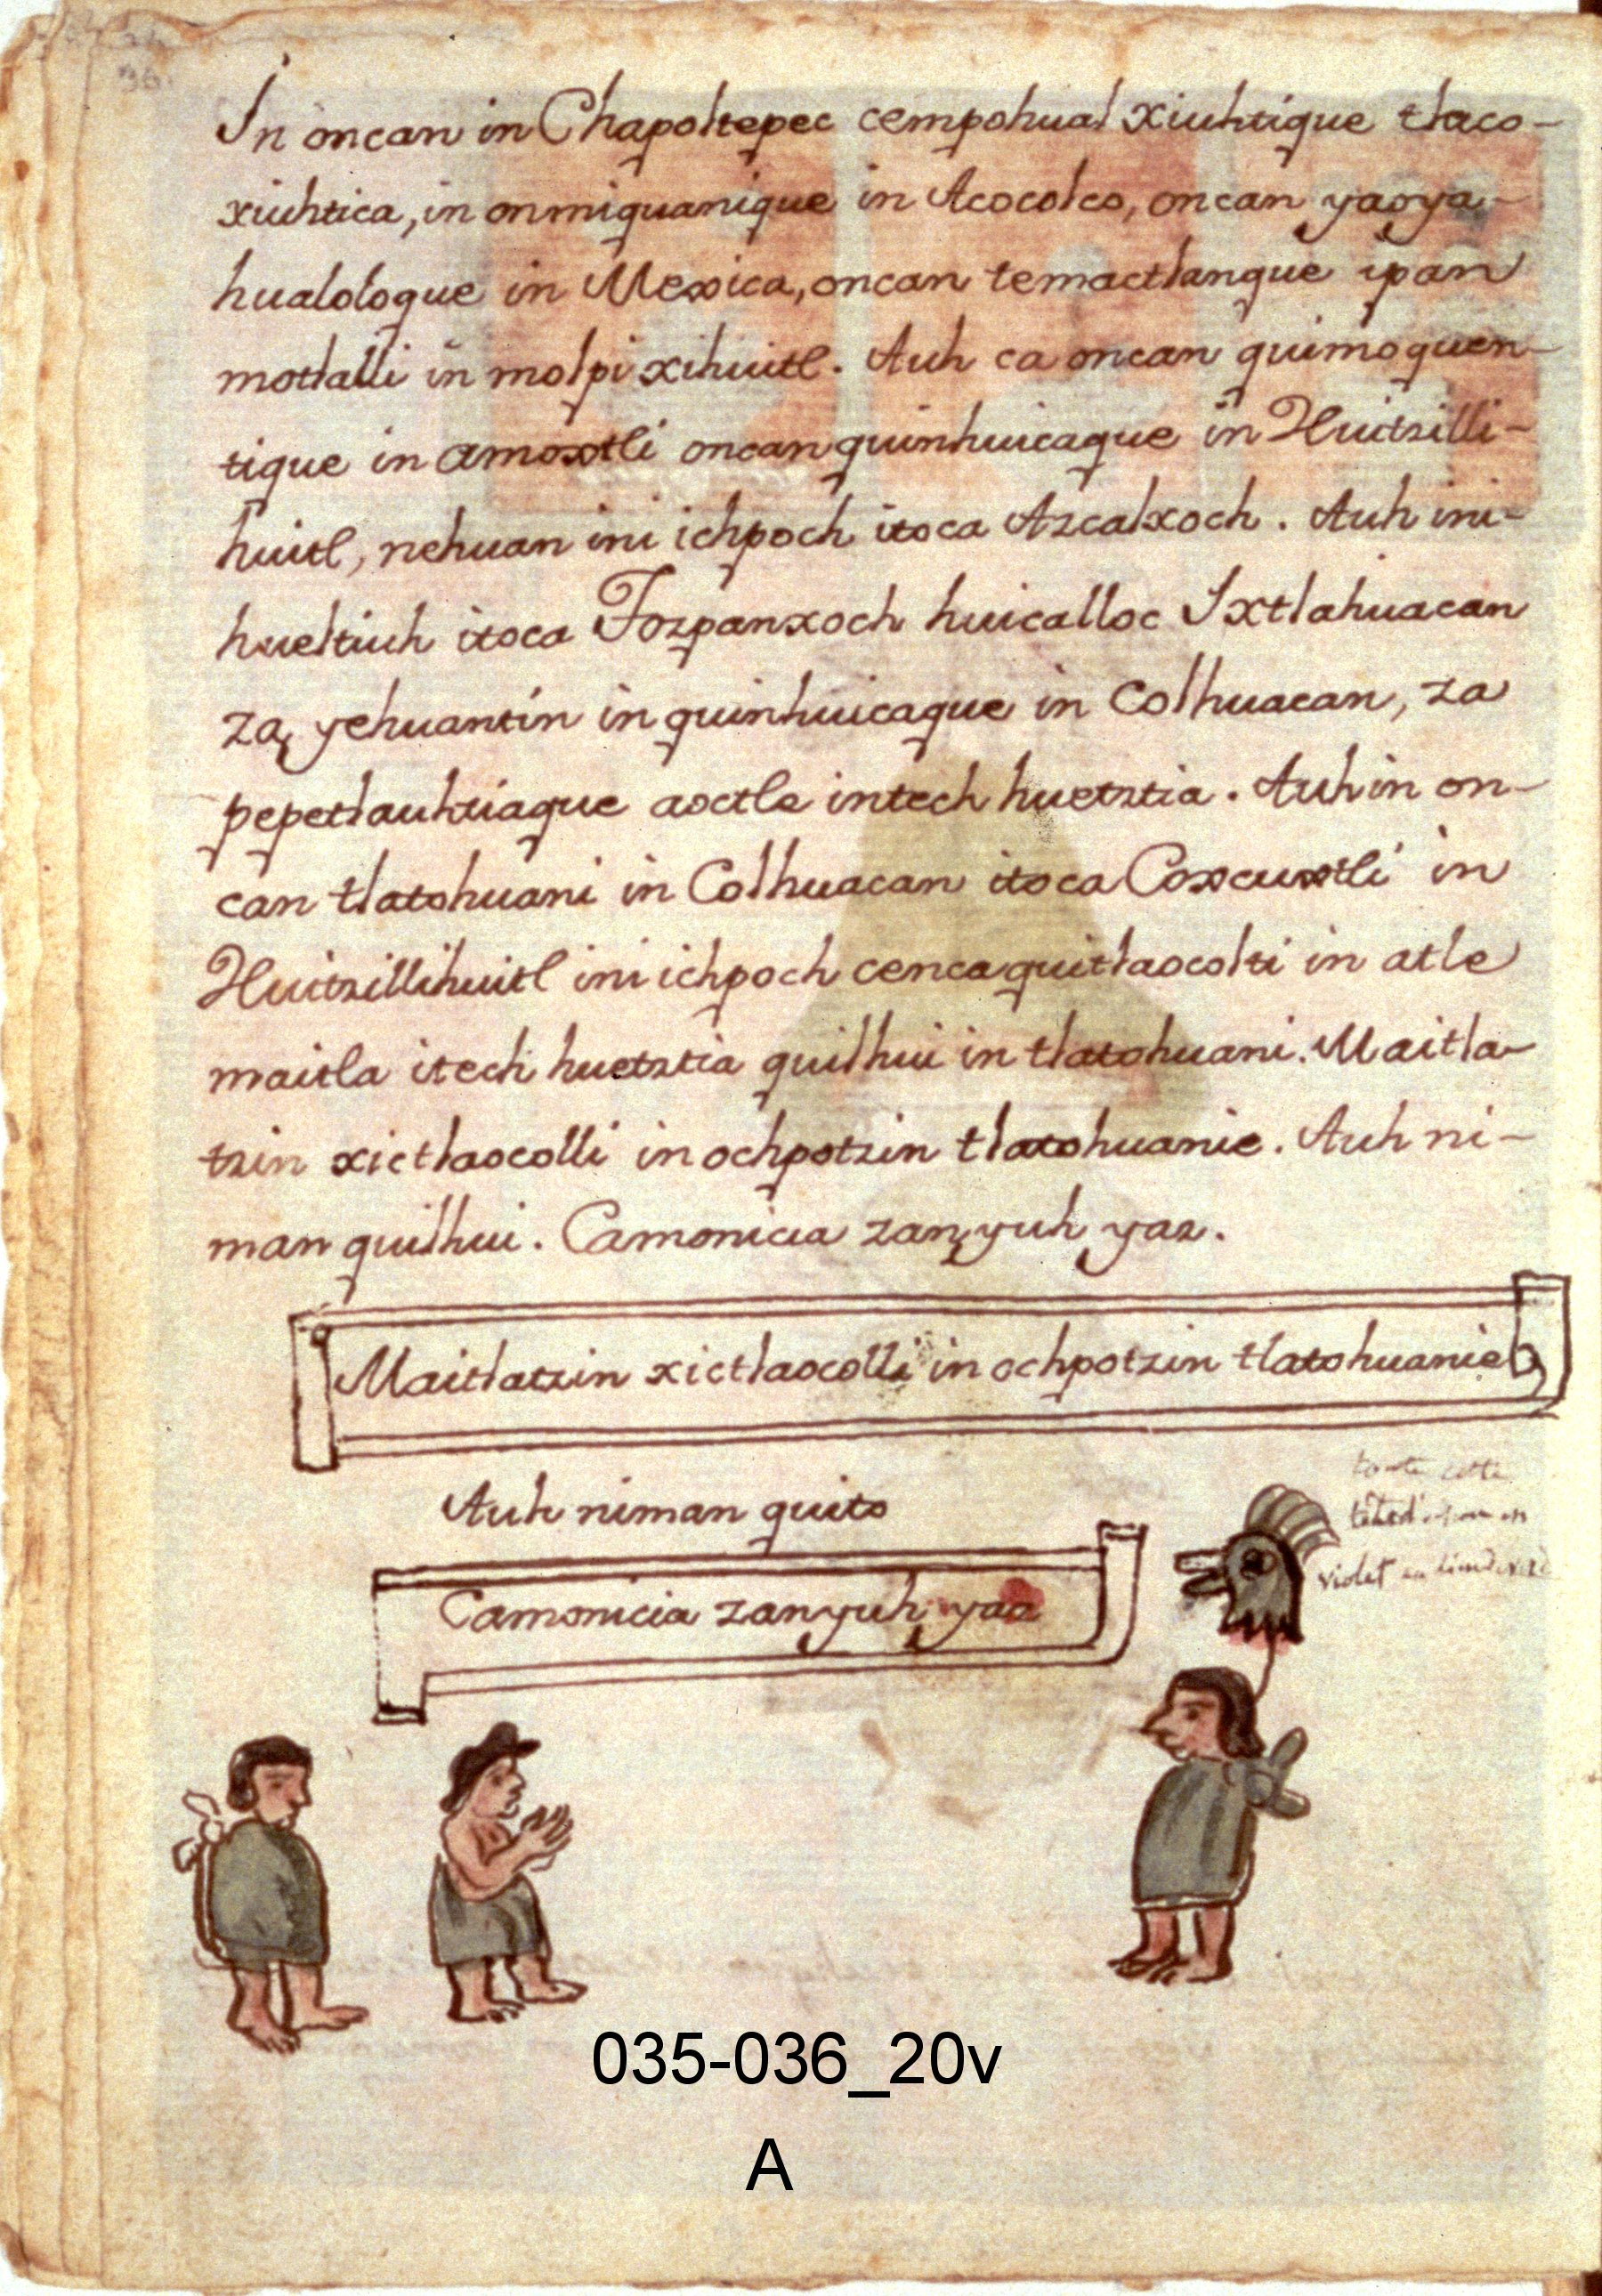 36.
In oncan in Chapoltepec cempohual xiuhtique tlaco-
xiuhtica, in onmiquanique in Acocolco, oncan yaoya-
hualoloque in Mexica, oncan temactlanque ipan
motlalli in molpi xihuitl. Auh ca oncan quimoquen-
tique in amoxtli oncan quinhuicaque in Huitzilli-
huitl, nehuan ini ichpoch itoca Azcalxoch. Auh ini-
hueltiuh itoca Tozpanxoch huicalloc Ixtlahuacan
za yehuantin in quinhuicaque in Colhuacan, za
pepetlauhtiaque aoctle intech huetztia. Auh in on-
can tlatohuani in Colhuacan itoca Coxcuxtli in
Huitzillihuitl ini ichpoch cenca quitlaocolti in atle
maitla itech huetztia quilhui in tlatohuani. Maitla-
tzin xictlaocolli in ochpotzin tlatohuanie. Auh ni-
man quilhui. Camonicia zan yuh yaz.
Maitlatzin xictlaocolli in ochpotzin tlatohuanie
Auh niman quito
Camonicia zan yuh yaz
toute cette
violet
035-036_20v
A